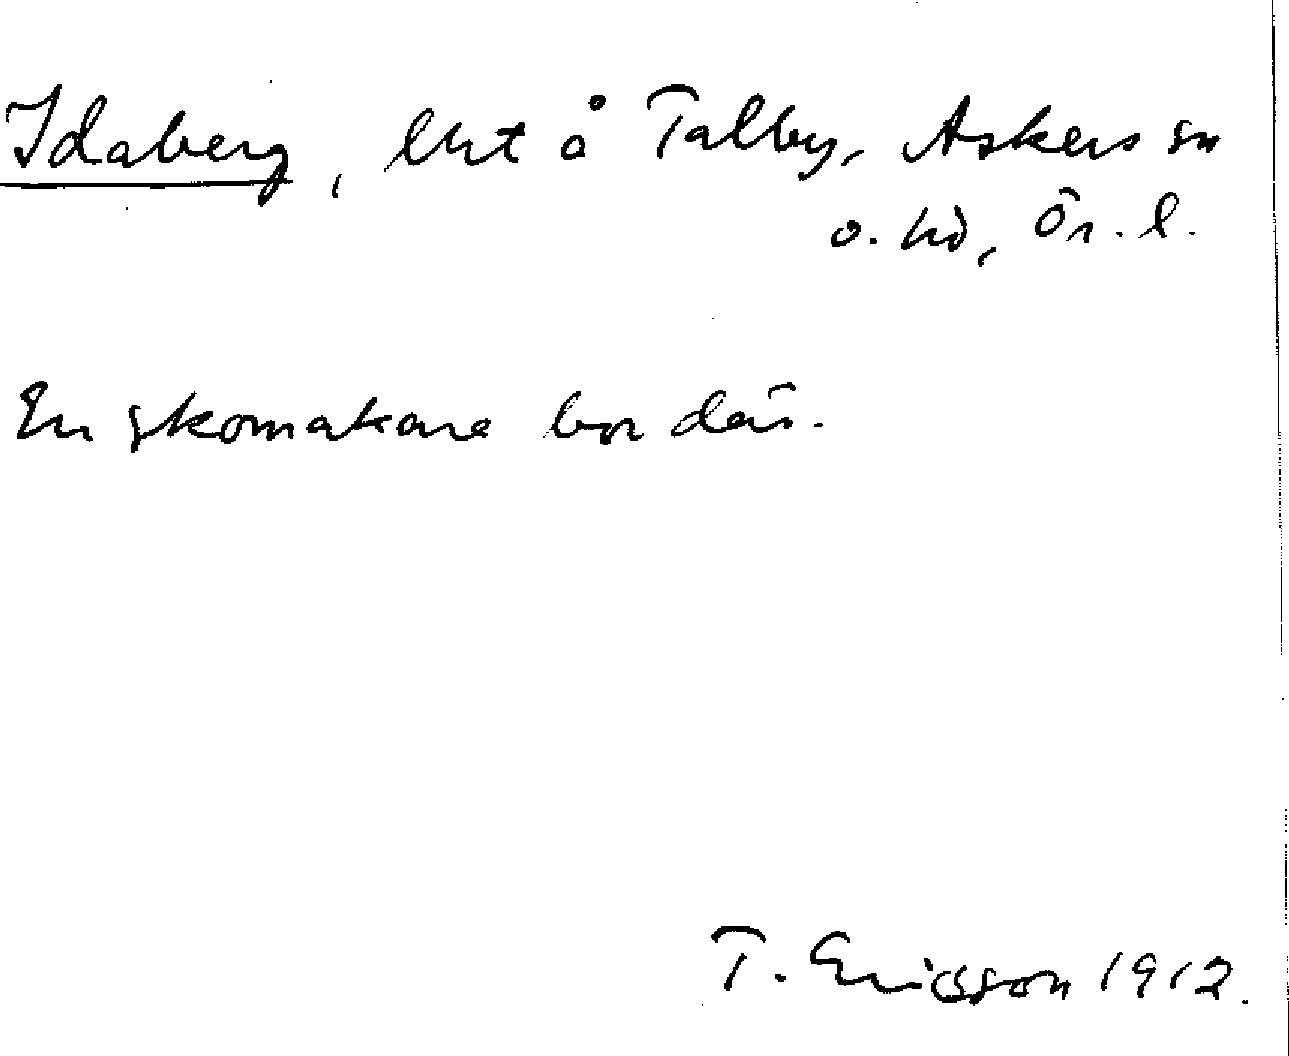 Idaberg, lht å Talby, Askers sn
o. hd, Ör. l.
En skomakare bor där.
T. Ericsson 1912.